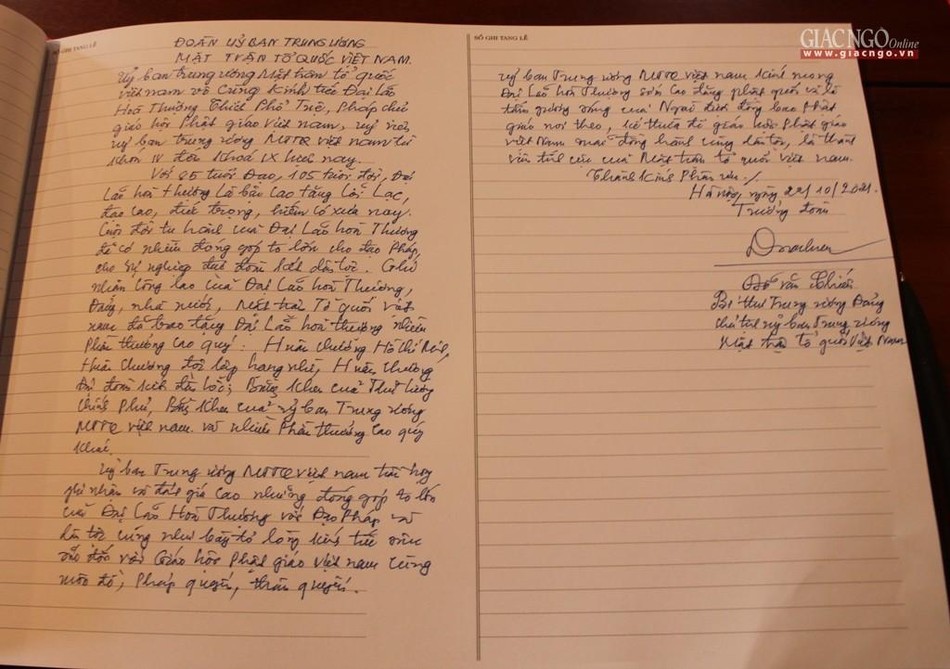 SỔ GHI TANG LỄ
ĐOÀN UỶ BAN TRUNG ƯƠNG
MẶT TRẬN TỔ QUỐC VIỆT NAM.
Uỷ ban trung ương Mặt trận tổ quốc
việt nam vô cùng kính tiếc Đại Lão
Hoà Thượng Thích Phổ Tuệ, Pháp chủ
giáo hội Phật giáo việt nam, uỷ viên
uỷ ban trung ương MTTQ việt nam từ
khoá IV đến khoá IX hiện nay.
Với 85 tuổi Đạo, 105 tuổi đời, Đại
Lão hoà Thượng là bậc Cao tăng Lỗi Lạc,
đạo cao, đức trọng, hiếm có xưa nay.
Cuộc đời tu hành của Đại Lão hoà Thượng
đã có nhiều đóng góp to lớn cho đạo Pháp,
cho sự nghiệp đại đoàn kết dân tộc. Ghi
nhận công lao của Đại Lão hoà Thượng,
Đảng, nhà nước, Mặt trận Tổ quốc việt
nam đã trao tặng Đại Lão hoà thượng nhiều
Phần thưởng cao quý: Huân chương Hồ Chí Minh,
Huân chương độc lập hạng nhì, Huân chương
Đại đoàn kết dân tộc; Bằng khen của Thủ tướng
chính Phủ, Bằng khen của uỷ ban Trung ương
MTTQ việt nam và nhiều Phần thưởng cao quý
khác.
Uỷ ban Trung ương MTTQ việt nam
ghi nhận và đánh giá cao những đóng góp to lớn
của Đại Lão Hoà Thượng với Đạo Pháp và
dân tộc cũng như bày tỏ lòng kính tiếc sâu
sắc đối với Giáo hội Phật giáo việt nam cùng
môn đồ, Pháp quyến, thân quyến.
SỔ GHI TANG LỄ
GIÁC NGỘ Online
www.giacngo.vn
uỷ ban Trung ương MTTQ việt nam kính mong
Đại Lão hoà Thượng sớm cao đăng phật quốc và là
tấm gương sáng của Ngài được đồng bào Phật
giáo noi theo, kế thừa để giáo hội Phật giáo
việt Nam mãi đồng hành cùng dân tộc, là thành
viên tích cực của Mặt trận tổ quốc việt nam.
Thành kính Phân ưu./.
Hà nội, ngày 22/10/2021.
Trưởng đoàn
Đỗ văn Chiến
Bí thư Trung ương Đảng
chủ tịch uỷ ban Trung ương
Mặt trận tổ quốc Việt Nam